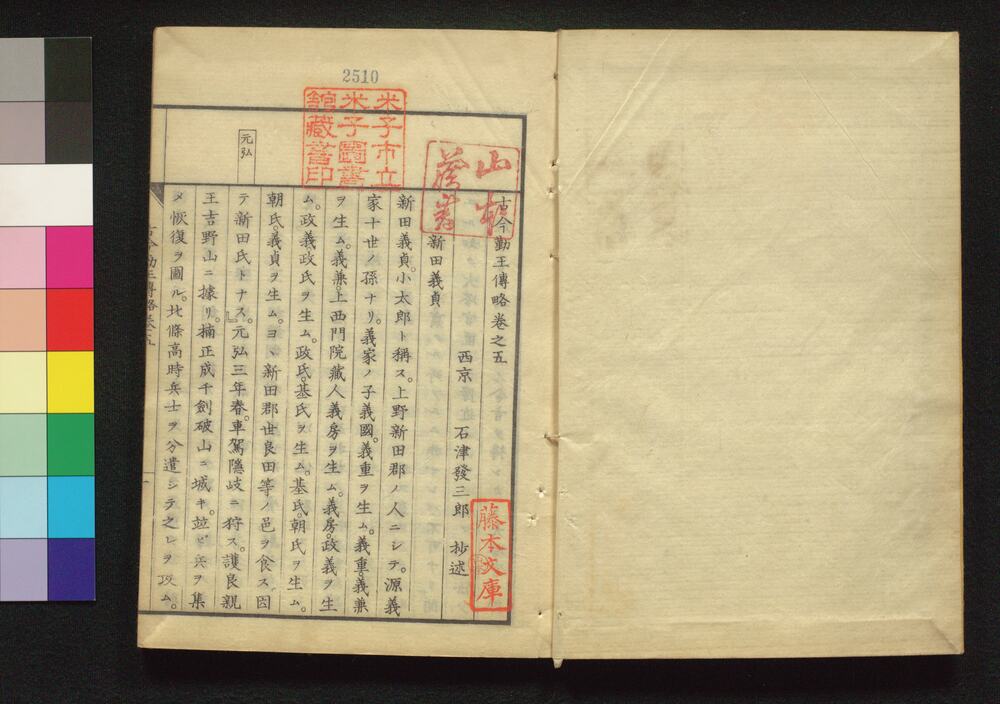 2510
米子市立
米子圖書
館藏書印
山村
藏書
古今勤王傳略卷之五
西京 石津發三郎 抄述
藤本文庫
新田義貞
新田義貞。小太郎ト稱ス。上野新田郡ノ人ニシテ。源義
家十世ノ孫ナリ。義家ノ子義國。義重ヲ生ム。義重。義兼
ヲ生ム。義兼。上西門院藏人義房ヲ生ム。義房。政義ヲ生
ム。政義。政氏ヲ生ム。政氏。基氏ヲ生ム。基氏。朝氏ヲ生ム。
朝氏。義貞ヲ生ム。ヨヽ新田郡世良田等ノ邑ヲ食ス。因
テ新田氏トナス。』元弘三年春。車駕隱岐ニ狩ス。護良親
元弘
王吉野山ニ據リ。楠正成千劍破山ニ城キ。竝ビ兵ヲ集
メ恢復ヲ圖ル。北條高時兵士ヲ分遣シテ之レヲ攻ム。
古今勤王傳略卷五
一